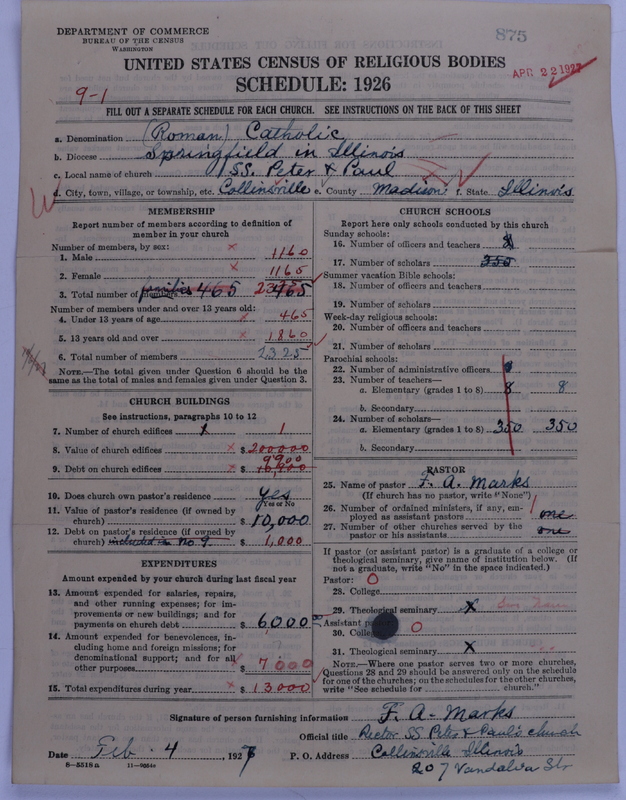 DEPARTMENT OF COMMERCE
BUREAU OF THE CENSUS
WASHINGTON
875
UNITED STATES CENSUS OF RELIGIOUS BODIES
SCHEDULE: 1926
APR 22 1927
9-1
FILL OUT A SEPARATE SCHEDULE FOR EACH CHURCH. SEE INSTRUCTIONS ON THE BACK OF THIS SHEET
a. Denomination (Roman) Catholic
b. Diocese Springfield in Illinois
c. Local name of church SS. Peter & Paul
d. City, town, village, or township, etc. Collinsville e. County Madison f. State Illinois
MEMBERSHIP
Report number of members according to definition of
member in your church
Number of members, by sex:
1. Male 1160
2. Female 1165
3. Total number of members families 465 2325 465
Number of members under and over 13 years old:
4. Under 13 years of age 465
5. 13 years old and over 1860
6. Total number of members 2325
NOTE.—The total given under Question 6 should be
the same as the total of males and females given under Question 3.
CHURCH BUILDINGS
See instructions, paragraphs 10 to 12
7. Number of church edifices 1 1
8. Value of church edifices $ 200000
9900
9. Debt on church edifices $ 10,900
10. Does church own pastor's residence Yes
Yes or No
11. Value of pastor's residence (if owned by
church) $ 10,000
12. Debt on pastor's residence (if owned by
church) included in No 9 $ 1,000
EXPENDITURES
Amount expended by your church during last fiscal year
13. Amount expended for salaries, repairs,
and other running expenses; for im-
provements or new buildings; and for
payments on church debt $ 6000
14. Amount expended for benevolences, in-
cluding home and foreign missions; for
denominational support; and for all
other purposes $ 7000
15. Total expenditures during year $ 13000
CHURCH SCHOOLS
Report here only schools conducted by this church
Sunday schools:
16. Number of officers and teachers 8
17. Number of scholars 350
Summer vacation Bible schools:
18. Number of officers and teachers
19. Number of scholars
Week-day religious schools:
20. Number of officers and teachers
21. Number of scholars
Parochial schools:
22. Number of administrative officers
23. Number of teachers—
a. Elementary (grades 1 to 8) 8 8
b. Secondary
24. Number of scholars—
a. Elementary (grades 1 to 8) 350 350
b. Secondary
PASTOR
25. Name of pastor F. A. Marks
(If church has no pastor, write "None")
26. Number of ordained ministers, if any, em-
ployed as assistant pastors 1 one
27. Number of other churches served by the
pastor or his assistants one
If pastor (or assistant pastor) is a graduate of a college or
theological seminary, give name of institution below. (If
not a graduate, write "No" in the space indicated.)
Pastor: O
28. College
29. Theological seminary x
Assistant
30. O
31. Theological seminary x
NOTE.—Where one pastor serves two or more churches,
Questions 28 and 29 should be answered only on the schedule
for one of the churches; on the schedules for the other churches,
write "See schedule for church."
Signature of person furnishing information F. A. Marks
Official title Rector SS. Peter & Paul's church
Date Feb. 4 1927 P. O. Address Collinsville Illinois
8-5518a 11-9664c 207 Vandalia Str